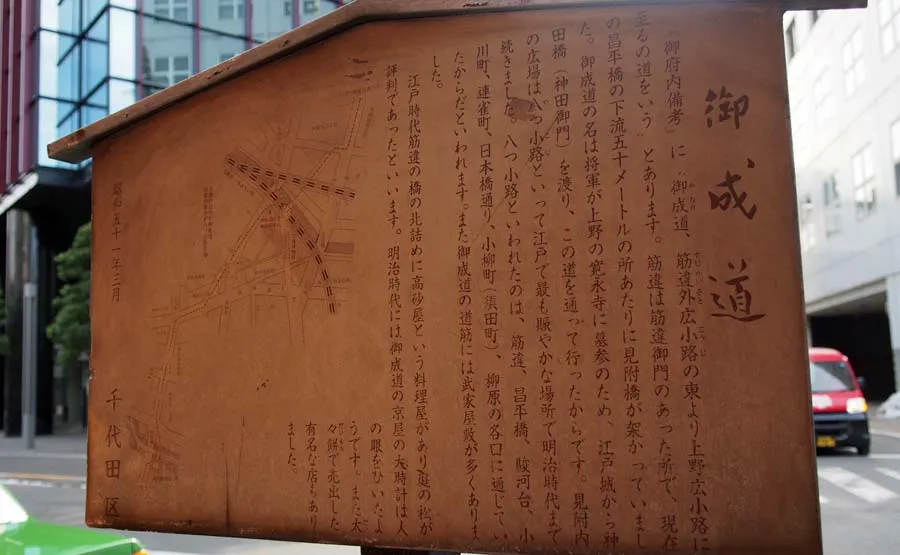 御成道
「御府内備考」に〝御成道、筋違外広小路の東より上野広小路に
至るの道をいう〟とあります。筋違は筋違御門のあった所で、現在
の昌平橋の下流五十メートルの所あたりに見附橋が架かっていまし
た。御成道の名は将軍が上野の寛永寺に墓参のため、江戸城から神
田橋(神田御門)を渡り、この道を通って行ったからです。見附内
の広場は八つ小路といって江戸で最も賑やかな場所で明治時代まで
続きました。八つ小路といわれたのは、筋違、昌平橋、駿河台、小
川町、連雀町、日本橋通り、小柳町(須田町)、柳原の各口に通じてい
たからだといわれます。また御成道の道筋には武家屋敷が多くありま
した。
江戸時代筋違の橋の北詰めに高砂屋という料理屋があり庭の松が
評判であったといいます。明治時代には御成道の京屋の大時計は人
の眼をひいたよ
うです。また太
々餅で売出した
有名な店もあり
ました。
昭和五十一年三月
千代田区